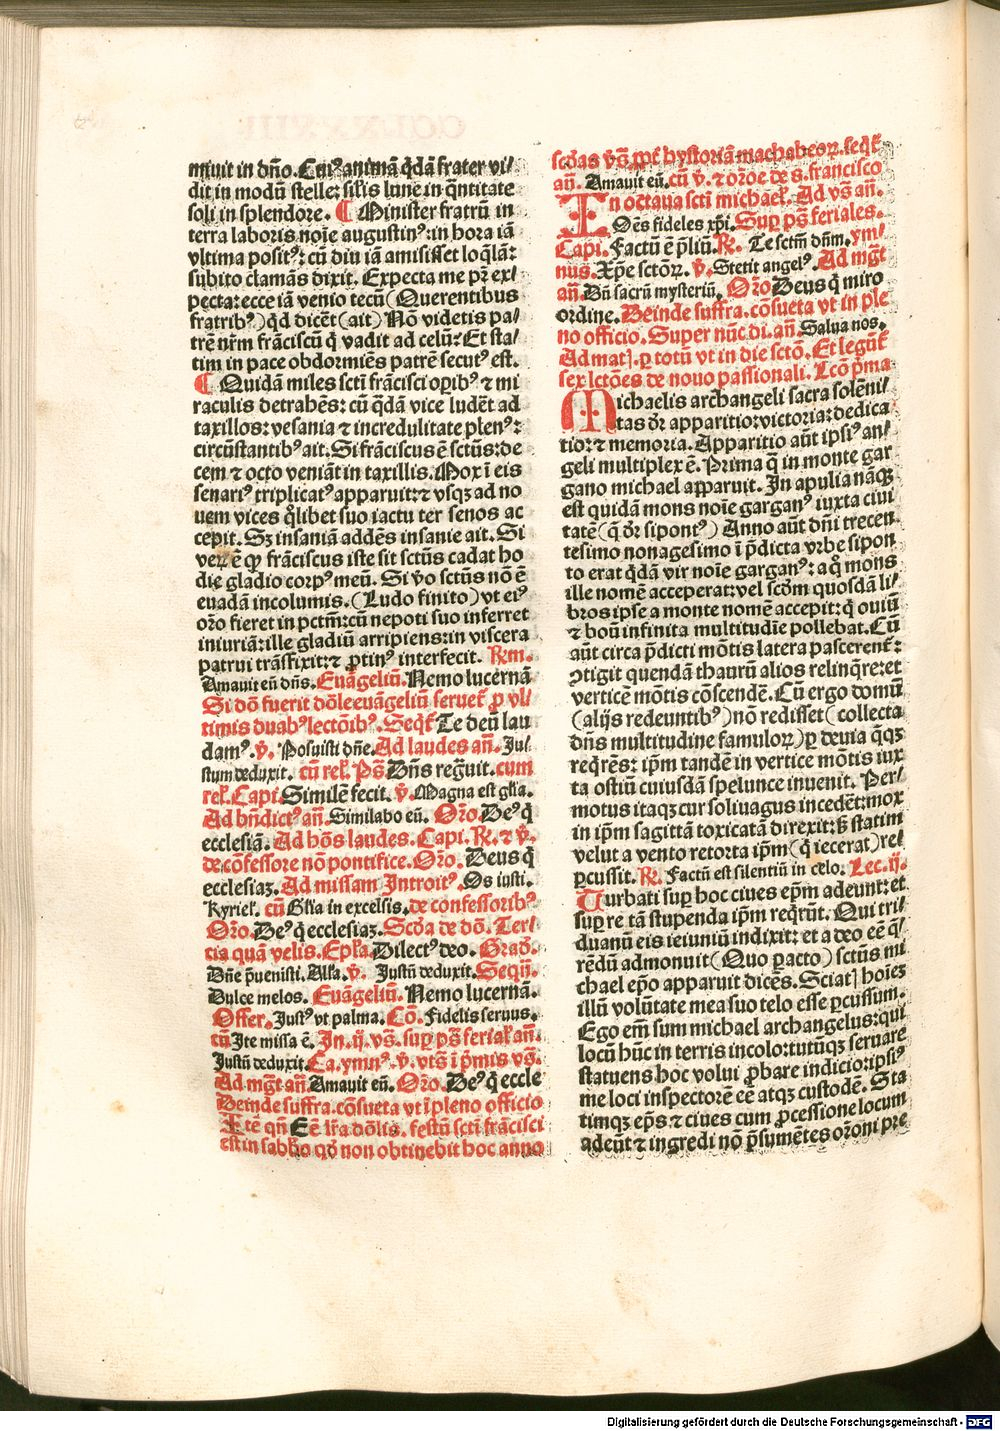 miuit in dño. Eiꝰ animā q̄dā frater vi/
dit in modū stelle: sil'is lune in q̄ntitate
soli in splendore. ¶ Minister fratrū in
terra laboris noīe augustinꝰ: in hora iā
vltima positꝰ: cū diu iā amisisset loq̄lā:
subito clamās dixit. Expecta me pr̄ ex/
pecta: ecce iā venio tecū (Querentibus
fratribꝰ) qd dicēt (ait) Nō videtis pa/
trē nr̄m frāciscū q̄ vadit ad celū: Et sta/
tim in pace obdormiēs patrē secutꝰ est.
¶ Quidā miles scti frācisci opibꝰ ⁊ mi
raculis detrahēs: cū q̄dā vice ludēt ad
taxillos: vesania ⁊ incredulitate plenꝰ:
circūstantibꝰ ait. Si frāciscus ē sctūs: de
cem ⁊ octo veniāt in taxillis. Mox ī eis
senariꝰ triplicatꝰ apparuit: ⁊ vsqꝫ ad no
uem vices q̄libet suo iactu ter senos ac
cepit. Sꝫ insaniā addēs insanie ait. Si
veꝝ ē ꝙ frāciscus iste sit sctūs cadat ho
die gladio corpꝰ meū. Si v̄o sctūs nō ē
euadā incolumis. (Ludo finito) vt eiꝰ
or̄o fieret in pctm̄: cū nepoti suo inferret
iniuriā: ille gladiū arripiens: in viscera
patrui trāsfixit: ⁊ ꝓtinꝰ interfecit. R̄m.
Amauit eū dn̄s. Euāgeliū. Nemo lucernā
Si dō fuerit dōle euāgeliū seruet̄ ꝓ vl/
timis duabꝰ lectōibꝰ. Seq̄t̄ Te deū lau
damꝰ. v̄. Posuisti dn̄e. Ad laudes an̄. Ju/
stum deduxit. cū rel'. Ps̄ Dn̄s regnuit. cum
rel'. Capi. Similē fecit. v̄. Magna est gl̄ia.
Ad bn̄dictꝰ an̄. Similabo eū. Or̄o. Deꝰ q̄
ecclesiā. Ad hōs laudes. Capi. R̄. ⁊ v̄.
de cōfessore nō pontifice. Or̄o. Deus q̄
ecclesiaꝫ. Ad missam Introitꝰ. Os iusti.
Kyriel'. cū Gl̄ia in excelsis. de confessoribꝰ
Or̄o. Deꝰ q̄ ecclesiaꝫ. Scd̄a de dō. Ter/
cia quā velis. Epl̄a. Dilectꝰ deo. Grad̄.
Dn̄e p̄uenisti. Alla. v̄. Justū deduxit. Seq̄n̄.
Dulce melos. Euāgeliū. Nemo lucernā.
Offer. Justꝰ vt palma. Cō. Fidelis seruus.
cū Ite missa ē. In .ij. vs̄. sup̄ ps̄ ferial' an̄.
Justū deduxit. Ca. ymnꝰ. v̄. vts̄ ī p̄mis vs̄.
Ad mgt̄ an̄ Amauit eū. Or̄o. Deꝰ q̄ eccle
Deinde suffra. cōsueta vt ī pleno officio
Itē qn̄ E ē lr̄a dōlis. festū scti frācisci
est in sabbo qd non obtinebit hoc anno
scd̄as vs̄ ꝓpt̄ hystoriā machabeoꝝ. seq̄t̄
an̄. Amauit eū. cū v̄. ⁊ or̄oe de s. francisco
In octaua scti michael'. Ad vs̄ an̄.
Oēs fideles xp̄i. Sup̄ ps̄ feriales.
Capi. Factū ē p̄liū. R̄. Te sctm̄ dn̄m. ym/
nus. Xp̄e sctōꝝ. v̄. Stetit angelꝰ. Ad mgt̄
an̄. Dū sacrū mysteriū. Or̄o Deus q̄ miro
ordine. Deinde suffra. cōsueta vt in ple
no officio. Super nūc di. an̄. Salua nos.
Ad mat̄. ꝑ totū vt in die sctō. Et legūt̄
sex lctōes de nouo passionali. Lcō p̄ma
Michaelis archangeli sacra solēni/
tas dr̄ apparitio: victoria: dedica
tio: ⁊ memoria. Apparitio aūt ipsiꝰ an/
geli multiplex ē. Prima q̄ in monte gar
gano michael apparuit. In apulia nāqꝫ
est quidā mons noīe garganꝰ iuxta ciui
tatē (q̄ dr̄ sipontꝰ) Anno aūt dn̄i trecen
tesimo nonagesimo ī p̄dicta vrbe sipon
to erat q̄dā vir noīe garganꝰ: a q̄ mons
ille nomē acceperat: vel scd̄m quosdā li/
bros ipse a monte nomē accepit: q̄ ouiū
⁊ boū infinita multitudīe pollebat. Cū
aūt circa p̄dicti mōtis latera pascerent̄:
ꝯtigit quendā thaurū alios relinq̄re: et
verticē mōtis cōscendē. Cū ergo domū
(alijs redeuntibꝰ) nō redisset (collecta
dn̄s multitudine famuloꝝ) ꝑ deuia q̄qꝫ
req̄rēs: ip̄m tandē in vertice mōtis iux
ta ostiū cuiusdā spelunce inuenit. Per/
motus itaqꝫ cur soliuagus incedēt: mox
in ip̄m sagittā toxicatā direxit: sꝫ statim
velut a vento retorta ip̄m (q̄ iecerat) re/
ꝑcussit. R̄. Factū est silentiū in celo. Lec. ij.
Turbati sup̄ hoc ciues ep̄m adeunt: et
sup̄ re tā stupenda ip̄m req̄rūt. Qui tri/
duanū eis ieiuniū indixit: et a deo eē q̄/
rēdū admonuit (Quo ꝑacto) sctūs mi
chael ep̄o apparuit dicēs. Sciat̄ hoīes
illū volūtate mea suo telo esse ꝑcussum.
Ego em̄ sum michael archangelus: qui
locū hūc in terris incolo: tutūqꝫ seruare
statuens hoc volui ꝓbare indicio: ipsiꝰ
me loci inspectorē eē atqꝫ custodē. Sta
timqꝫ ep̄s ⁊ ciues cum ꝓcessione locum
adeūt ⁊ ingredi nō p̄sumētes or̄oni pre
Digitalisierung gefördert durch die Deutsche Forschungsgemeinschaft - DFG